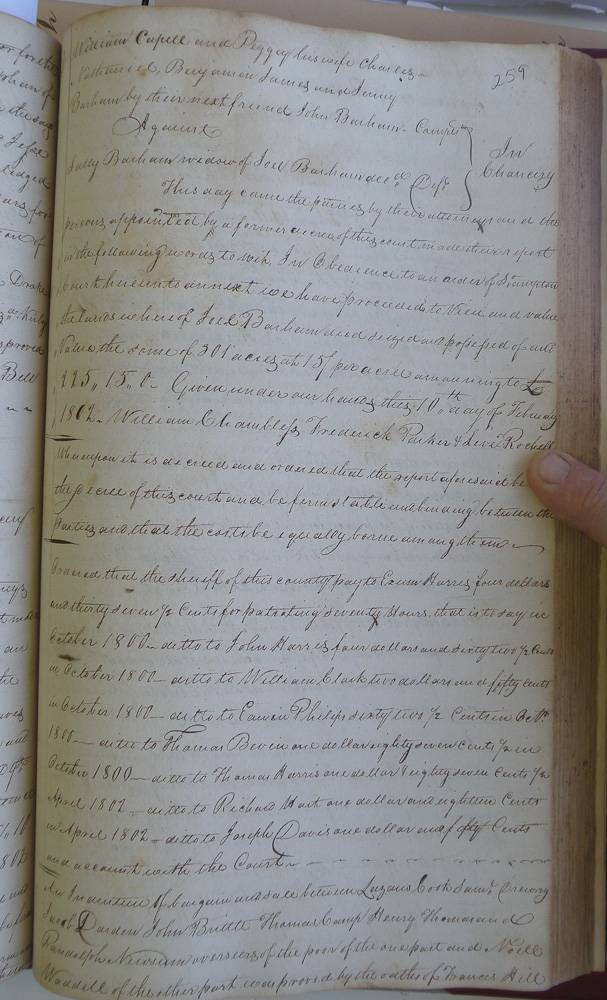 259
William Capell and Peggy his wife Charles
Nathaniel, Benjamin James and Jenny
Barham by their next friend John Barham Complts
Against
In Chancery
Sally Barham widow of Joel Barham decd. Deft.
This day came the parties by their attornies and the
persons appointed by a former decree of this court made their report
in the following words to wit, In Obedience to an order of Southampton
Court hereunto annext we have proceeded to View and value
the lands whereof Joel Barham died seized and possessed of and
Value the same of 301 acres at 15/ per acre amounting to £
225,, 15,, 0 - Given under our hands this 10th day of February
1802 - William Chambless, Frederick Parker & Levi Rochell
Whereupon it is decreed and ordered that the report aforesaid be
the decree of this court and be firm stable and binding between the
Parties, and that the costs be equally borne among them
Ordered that the sheriff of this county pay to Exum Harris, four dollars
and thirty seven 1/2 Cents for patroling seventy Hours, that is to say in
October 1800 - ditto to John Harris, four dollars and sixty two 1/2 Cents
in October 1800 - ditto to William Clark two dollars and fifty Cents
in October 1800 - ditto to Edwin Philips sixty two 1/2 Cents in Octr.
1800 - ditto to Thomas Beven one dollar eighty seven Cents 1/2 in
October 1800 - ditto to Thomas Harris one dollar & eighty seven Cents 1/2
April 1802 - ditto to Richard Hart one dollar and eighteen Cents
in April 1802 - ditto to Joseph Davis one dollar and fifty Cents
and account with the Court
An Indenture of bargain and sale between Lazarus Cook Saml.
Jacob Dardon John Brittle Thomas Camp Henry Thomas and
Randolph Newsum overseers of the poor of the one part and Noell
Waddell of the other part was proved by the oaths of Frances Hill